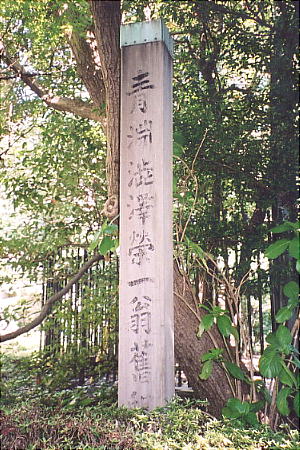 青淵澁澤榮一翁舊